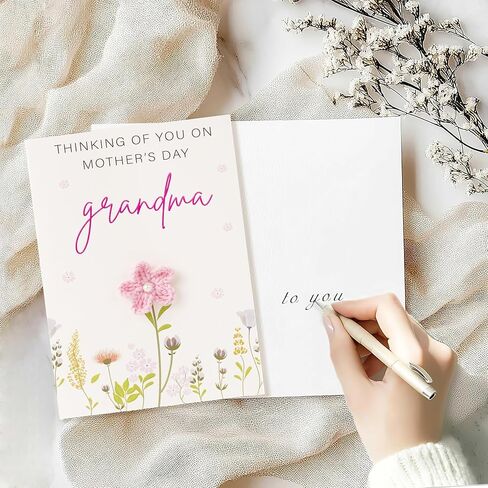 THINKING OF YOU ON
MOTHER'S DAY
grandma
to you